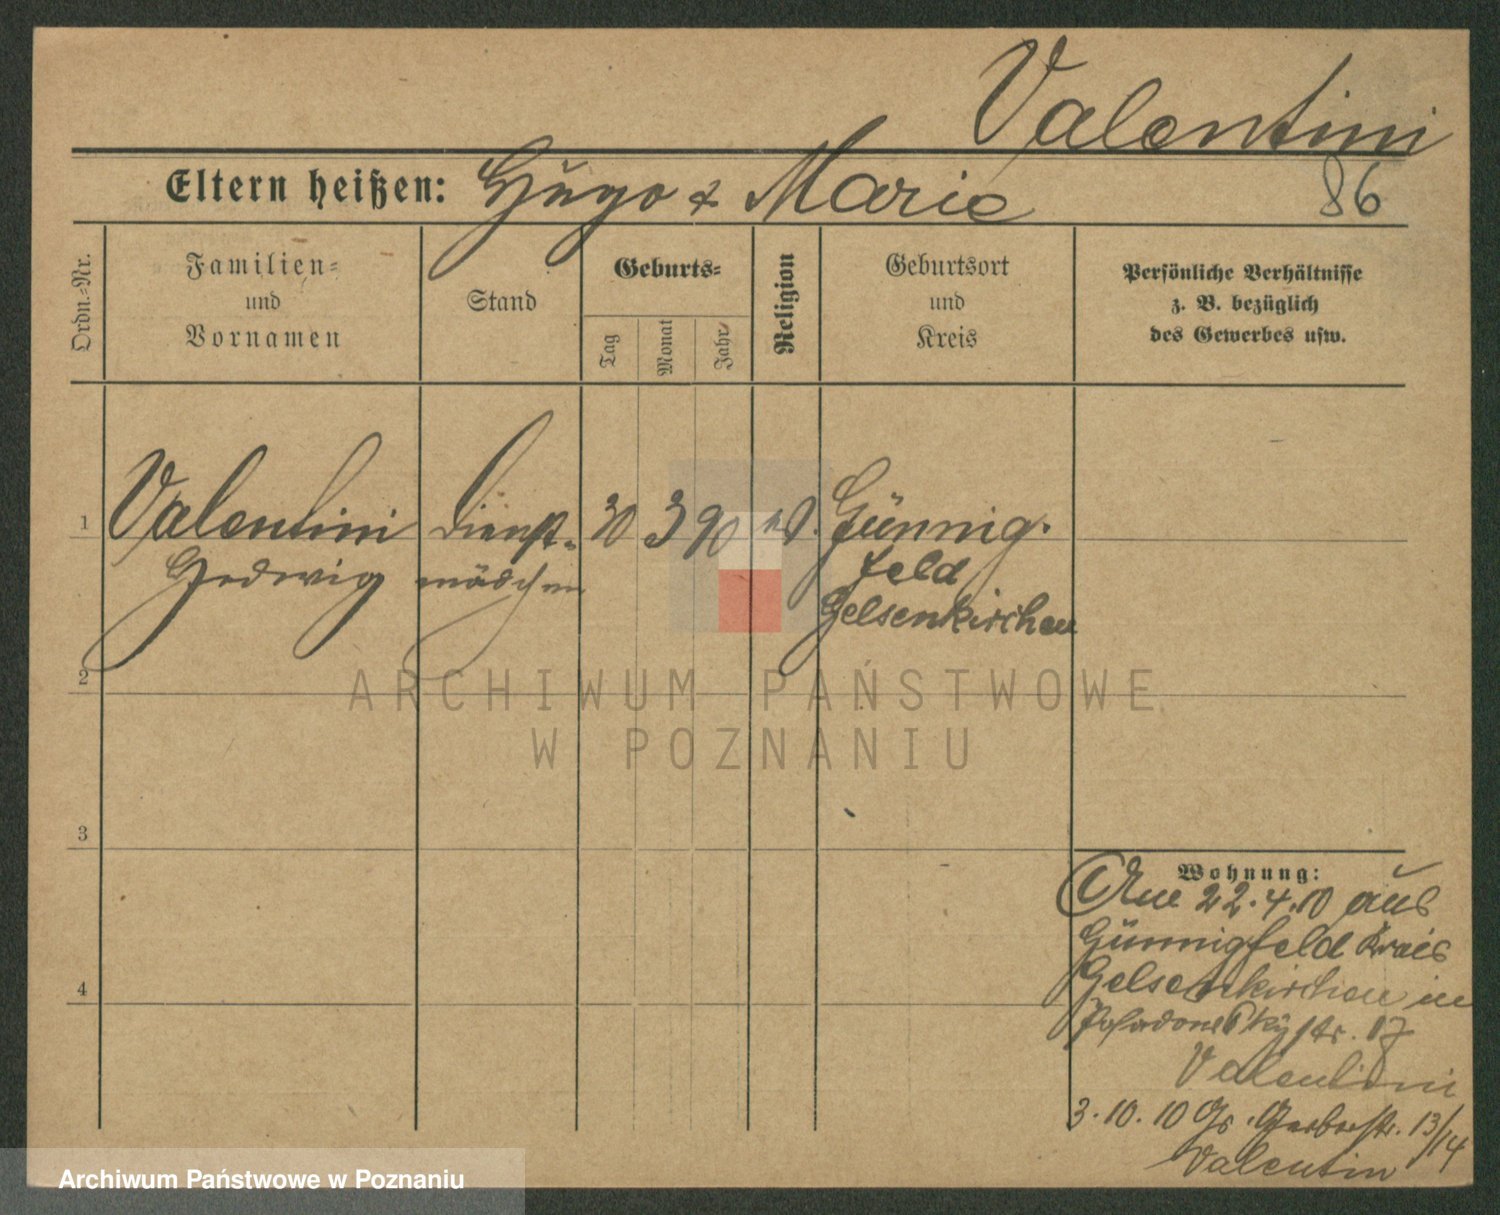 Valentini
Eltern heißen: Hugo & Marie
86
Ordn.-Nr.
Familien-
und
Vornamen
Stand
Geburts-
Tag
Monat
Jahr
Religion
Geburtsort
und
Kreis
Persönliche Verhältnisse
z. B. bezüglich
des Gewerbes usw.
1
Valentini
Hedwig
Dienst-
mädchen
30
3
90
Günnig-
feld
Gelsenkirchen
2
ARCHIWUM PAŃSTWOWE
W POZNANIU
3
Wohnung:
22.4.10 aus
Günnigfeld Kreis
Gelsenkirchen in
str. 17
Valentini
3.10.10 Gr. Gerberstr. 13/14
Valentin
4
Archiwum Państwowe w Poznaniu